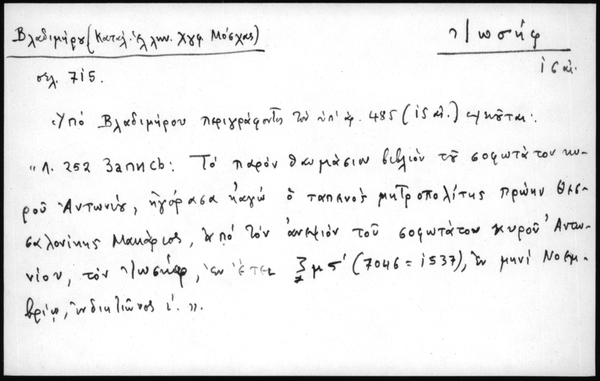 Βλαδιμήρου (Κατάλ. ἑλλην. χγφ. Μόσχας)
Ἰωσήφ
σελ. 715.
ις αἰ.
Ὑπὸ Βλαδιμήρου περιγράφοντος τὸν ὑπ' ἀ. 485 (ις αἰ.)
"Л. 252 Запись: Τὸ παρὸν θαυμάσιον βιβλίον τοῦ σοφωτάτου κυ-
ροῦ Ἀντωνίου, ἠγόρασα κἀγὼ ὁ ταπεινὸς μητροπολίτης πρώην Θεσ-
σαλονίκης Μακάριος, ἀπὸ τὸν ἀνεψιὸν τοῦ σοφωτάτου κυροῦ Ἀντω-
νίου, τὸν Ἰωσήφ, ἐν ἔτει ζμς' (7046 = 1537), ἐν μηνὶ Νοεμ-
βρίῳ, ἰνδικτιῶνος ι'.".